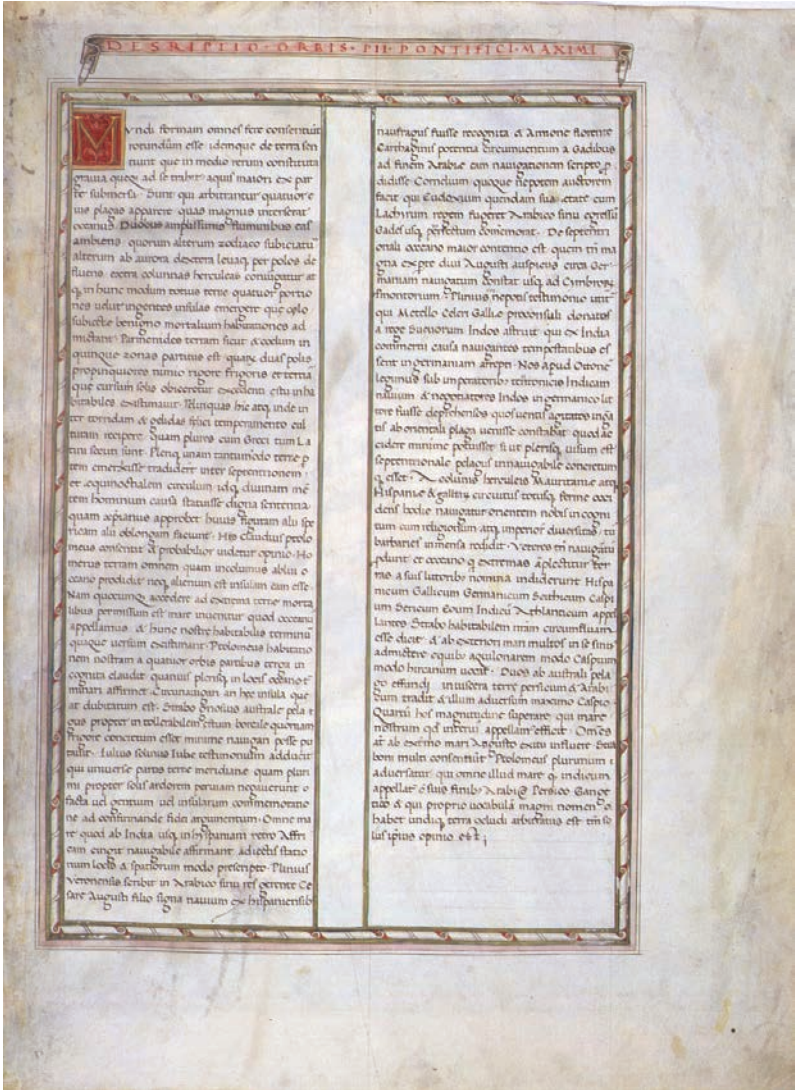 DESRIPTIO·ORBIS·PII·PONTIFICI·MAXIMI
Mvndi formam omnes fere consentiut
rotundum esse idemque de terra sen
tiunt que in medio rerum constituta
grauia queq ad se trahit aquis maiori ex par
te submersa· Sunt qui arbitrantur quatuor e
ius plagas apparere quas magnus interserat
occeanus Duobus amplissimis fluminibus eas
ambiens quorum alterum zodiaco subiciatur
alterum ab aurora dextera leuaq per polos de
fluens extra columnas herculeas coniugatur at
q in hunc modum totius terre quatuor portio
nes uelut ingentes insulas emergere que celo
subiecte benigno mortalium habitationes ad
mictant Parmenides terram sicut & coelum in
quinque zonas partitus est quarum duas polis
propinquiores nimio rigore frigoris et tertiā
que cursum solis obiceretur excedenti estu inha
bitabiles existimauit· Reliquas hic atq inde in
ter torridam & gelidas sitas temperamento cul
turam recipere· Quam plures cum Greci tum La
tini secuti sunt· Plerique unam tantummodo terre p
tem emersisse tradidere inter septentrionem
et æquinoctialem circulum idq diuinam mē
tem hominum causa statuisse digna sententia
quam xpianus approbet huius figuram alii spe
ricam alii oblongam faciunt· His Claudius ptolo
meus consentit & probabilior uidetur opinio· Ho
merus terram omnem quam incolimus ablui o
ceano prodidit neq alienum est insulam eam esse
Nam quocumq accedere ad extrema terre morta
libus permissum est mare inuenitur quod occeanū
appellamus & hunc nostre habitabilis terminū
quaque uersum existimant· Ptolomeus habitatio
nem nostram a quatuor orbis partibus terra in
cognita claudit quamuis plerisq in locis occeano t
minari affirmet· Circunauigari an hec insula que
at dubitatum est· Strabo gnosius australe pela
gus propter intollerabilem estum boreale quoniam
frigore concretum esset minime nauigari posse pu
tauit· Iulius solinus Iube testimonium adducit
qui uniuerse partis terre meridiane quam pluri
mi propter solis ardorem peruiam negauerunt
facta uel gentium uel insularum commemoratio
ne ad confirmande fidei argumentum· Omne ma
re quod ab India usq in hispaniam retro Affri
cam cingit nauigabile affirmant adiectis statio
num locis & spatiorum modo prescripto· Plinius
Veronensis scribit in Arabico sinu res gerente Ce
sare Augusti filio signa nauium ex hispaniensib
naufragiis fuisse recognita & Annone florente
Carthaginis potentia circumuentum a Gadibus
ad finem Arabie eam nauigationem scripto p
didisse Cornelium quoque nepotem auctorem
facit qui Eudoxum quendam sua etate cum
Lachirum regem fugeret Arabico sinu egressū
Gades usq peruectum comemorat· De septentri
onali occeano maior contentio est quem tn ma
gna ex pte diui Augusti auspiciis circa Ger
maniam nauigatum constat usq ad Cymbroꝝ
pmontorium· Plinius nepotis testimonio utit
qui Metello Celeri Gallie proconsuli donatos
a rege Sueuorum Indos astruit qui ex India
commertii causa nauigantes tempestatibus es
sent in germaniam arrepti· Nos apud Ottonē
legimus sub imperatorib teutonicis Indicam
nauim & negotiatores Indos in germanico lit
tore fuisse deprehensos quos uentis agitatos inga
tis ab orientali plaga uenisse constabat quod ac
cidere minime potuisset si ut plerisq uisum est
septentrionale pelagus innauigabile concretum
q esset· A columnis herculeis Mauritanie atq
Hispanie & galliarum circuitus totusq ferme occi
dens hodie nauigatur orientem nobis incogni
tum cum religionum atq imperiorum diuersitas tū
barbaries inmensa reddit· Veteres tn nauigatū
pdunt· et occeano q extremas āplectitur ter
ras a suis littoribus nomina indiderunt Hispa
nicum Gallicum Germanicum Scithicum Caspi
um Sericum Eoum Indicū Athlanticum appel
lantes· Strabo habitabilem nram circumfluam
esse dicit & ab exteriori mari multos in se sinus
admictere equibus aquilonarem modo Caspium
modo hircanum uocat· Duos ab australi pela
go effundi intuisera terre persicum & Arabi
cum tradit & illum aduersum maximo Caspio
Quartū hos magnitudine superare qui mare
nostrum qd interius appellam efficit· Omēs
at ab extimo mari Angusto exitu influere· Stra
boni multi consentiunt Ptolomeus plurimum
aduersatur qui omne illud mare q indicum
appellat c suis finib Arabico Persico Gange
tico & qui proprio uocabulo magni nomen
habet undiq terra cludi arbitratus est tn so
lus ipsius opinio